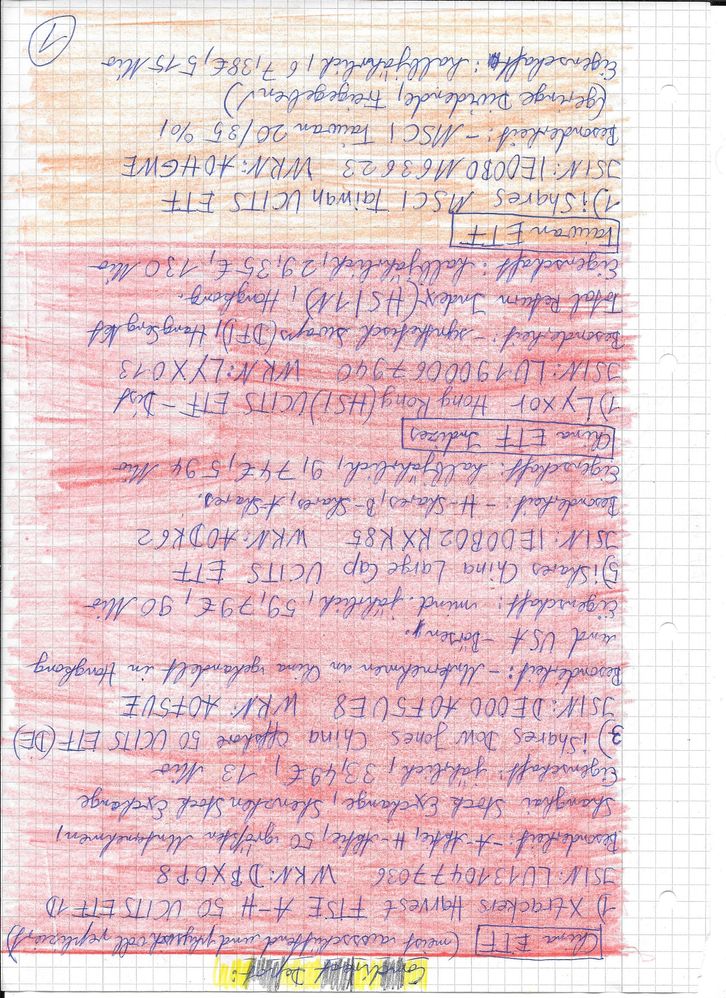 Comdirect Depot:
China ETF (meist ausschüttend und physisch voll repliziert)
1) Xtrackers Harvest FTSE A-H 50 UCITS ETF 1D
JSIN: LU1310477036 WKN: DBX0P8
Besonderheit: - A-Aktie, H-Aktie, 50 größten Unternehmen,
Shanghai Stock Exchange, Shenzhen Stock Exchange
Eigenschaft: jährlich, 33,49€, 13 Mio
3) iShares Dow Jones China Offshore 50 UCITS ETF (DE)
JSIN: DE000A0F5UE8 WKN: A0F5UE
Besonderheit: - Unternehmen in China gehandelt in Hongkong
und USA-Börsen.
Eigenschaft: mind. jährlich, 59,79€, 90 Mio
5) iShares China Large Cap UCITS ETF
JSIN: IE00B02KXK85 WKN: A0DK62
Besonderheit: - H-Shares, B-Shares, A-Shares.
Eigenschaft: halbjährlich, 9,74€, 594 Mio
China ETF Indizes
1) Lyxor Hong Kong (HSI) UCITS ETF - Dist
JSIN: LU1900067940 WKN: LYX013
Besonderheit: - synthetisch Swaps (DFD), HangSeng Net
Total Return Index (HSI1N), Hongkong.
Eigenschaft: halbjährlich, 29,35€, 130 Mio
Taiwan ETF
1) iShares MSCI Taiwan UCITS ETF
JSIN: IE00B0M63623 WKN: A0HGWE
Besonderheit: - MSCI Taiwan 20/35 %!
(geringe Dividende, freigegeben!)
Eigenschaft: halbjährlich, 67,38€, 515 Mio
1